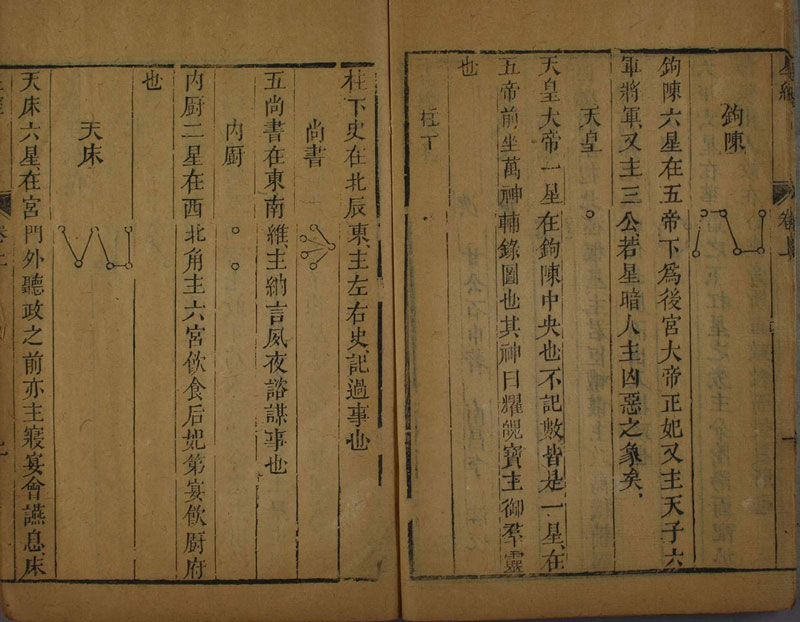 星經
卷上
鉤陳
鉤陳六星在五帝下爲後宮大帝正妃又主天子六
軍將軍又主三公若星暗人主凶惡之象矣
天皇
天皇大帝一星在鉤陳中央也不記數皆是一星在
五帝前坐萬神輔錄圖也其神曰耀魄寶主御羣靈
也
柱下
柱下史在北辰東主左右史記過事也
尚書
五尚書在東南維主納言夙夜諮謀事也
內厨
內厨二星在西北角主六宮飲食后妃第宴飲厨府
也
天床
天床六星在宮門外聽政之前亦主寢宴會讌息床